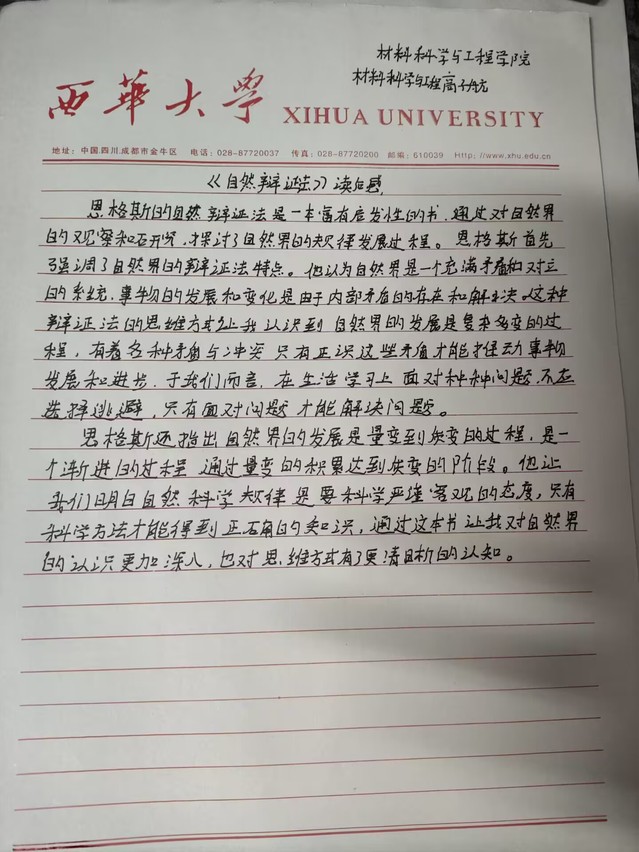 材料科学与工程学院
材料科学与工程高子航
西華大學 XIHUA UNIVERSITY
地址：中国.四川.成都市金牛区 电话：028-87720037 传真：028-87720200 邮编：610039 Http://www.xhu.edu.cn
《自然辩证法》读后感
恩格斯的自然辩证法是一本富有启发性的书，通过对自然界
的观察和研究，探讨了自然界的规律发展过程。恩格斯首先
强调了自然界的辩证法特点。他认为自然界是一个充满矛盾和对立
的系统，事物的发展和变化是由于内部矛盾的存在和解决。这种
辩证法的思维方式让我认识到自然界的发展是复杂多变的过
程，有着各种矛盾与冲突只有正识这些矛盾才能推动事物
发展和进步。于我们而言，在生活学习上面对种种问题，不应
选择逃避，只有面对问题才能解决问题。
恩格斯还指出自然界的发展是量变到质变的过程，是一
个渐进的过程通过量变的积累达到质变的阶段。他让
我们明白自然科学规律是要科学严谨客观的态度，只有
科学方法才能得到正确的知识，通过这本书让我对自然界
的认识更加深入，也对思维方式有了更清晰的认知。